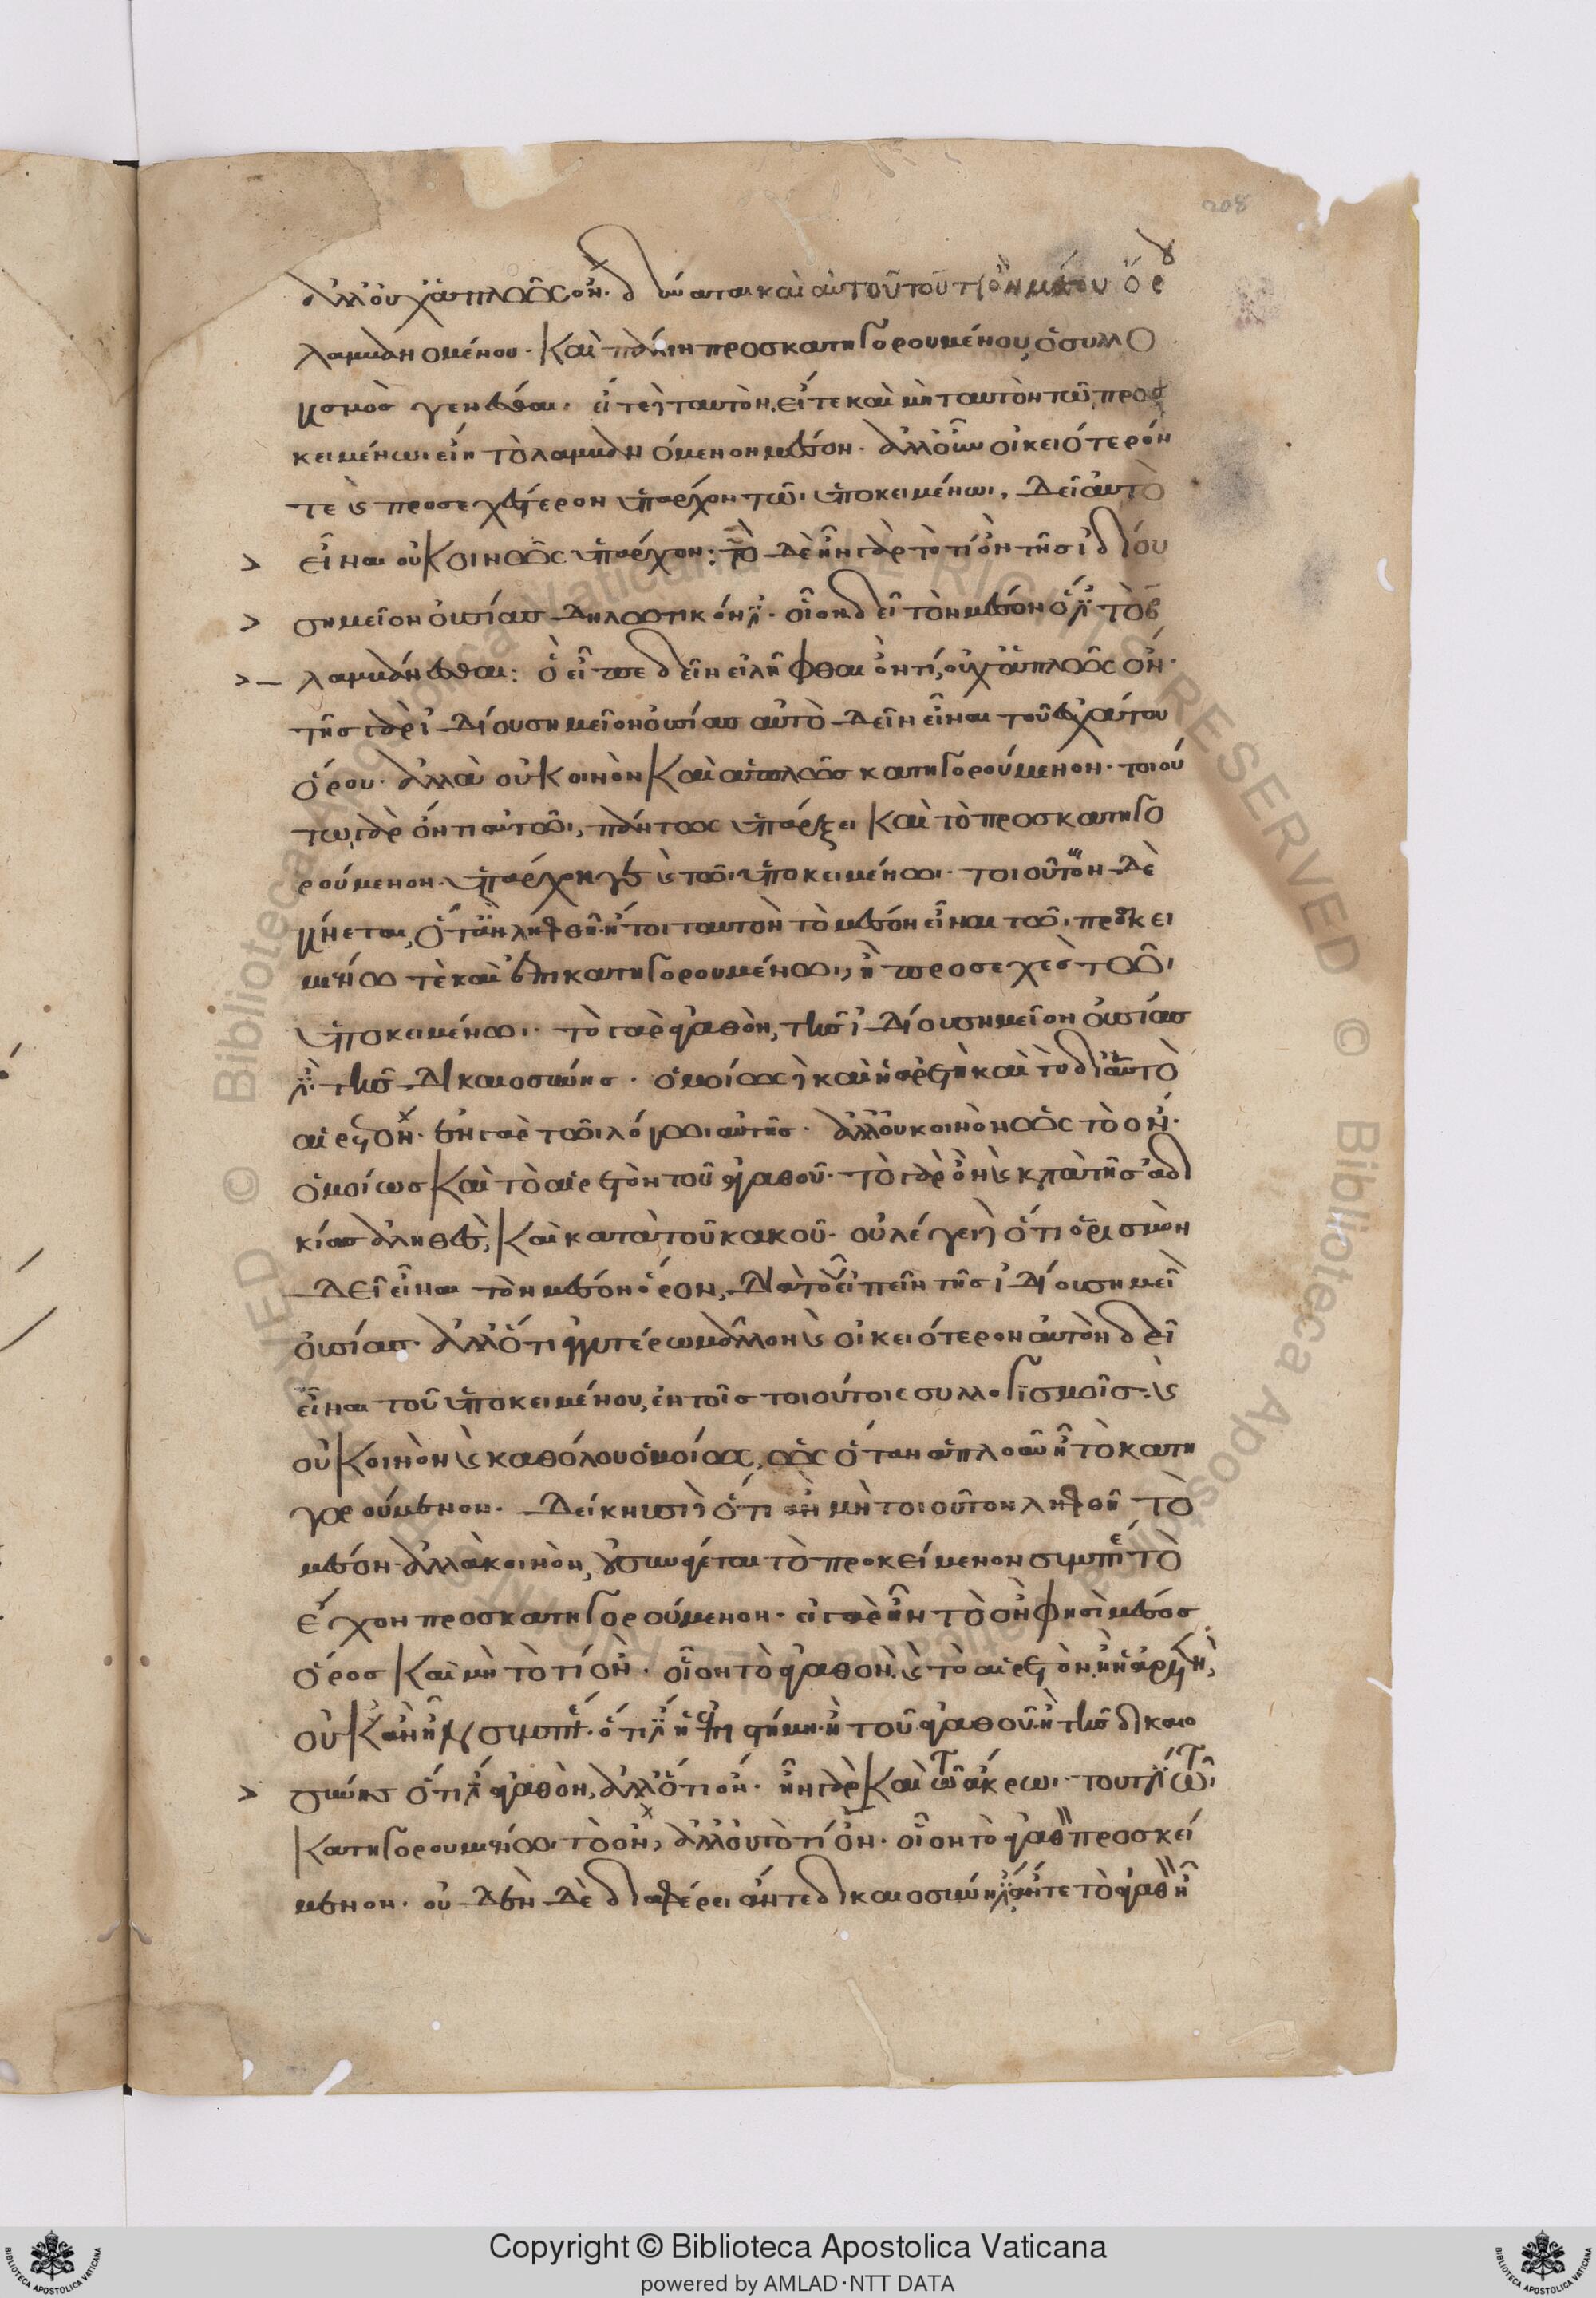 208
ἀλλ' οὐχ ἁπλῶς ὄν. δύναται καὶ αὐτοῦ τοῦ τὶ ὂν μέσου ὅρου
λαμβανομένου. καὶ πάλιν προσκατηγορουμένου, ὁ συλλο
γισμὸς γενέσθαι. εἴτε ταυτὸν, εἴτε καὶ μὴ ταυτὸν τῶ προσ
κειμένωι εἴη τὸ λαμβανόμενον μέσον. ἀλλ' οὖν οἰκειότερόν
τε καὶ προσεχέστερον ὑπάρχον τῶι ὑποκειμένωι. δεῖ αὐτὸ
εἶναι οὐ κοινῶς ὑπάρχον: τὸ δὲ ἦν γὰρ τὸ τὶ ὂν τῆς ἰδίου
σημεῖον οὐσίας δηλωτικόν ἐστι. οἷον δεῖ τὸν μέσον ἐστὶ τὸ
λαμβάνεσθαι: ὃ εἶπε δεῖν εἰλῆφθαι ὄν τί, οὐχ ἁπλῶς ὄν.
τῆς γὰρ ἰδίου σημεῖον οὐσίας αὐτὸ δεῖν εἶναι τοῦ ἐσχάτου
ὅρου. ἀλλὰ οὐ κοινὸν καὶ ἁπλῶς κατηγορούμενον. τοιού
τω γὰρ ὄντι αὐτῶι, πάντως ὑπάρξει καὶ τὸ προσκατηγο
ρούμενον. ὑπάρχον καὶ τῶι ὑποκειμένωι. τοιοῦτον δὲ
γίνεται, ὅταν ληφθῆ ἤτοι ταυτὸν τὸ μέσον εἶναι τῶι προκει
μένω τὲ καὶ ἐπικατηγορουμένωι, ἢ προσεχὲς τῶι
ὑποκειμένωι. τὸ γὰρ ἀγαθὸν, τῆς ἰδίου σημεῖον οὐσίας
ἐστὶ τῆς δικαιοσύνης. ὁμοίως δὲ καὶ ἡ ἀρετὴ καὶ τὸ δι' αὑτὸ
αἱρετόν. ἐν γὰρ τῶι λόγωι αὐτῆς. ἀλλ' οὐ κοινὸν ὡς τὸ ὄν.
ὁμοίως καὶ τὸ αἱρετὸν τοῦ ἀγαθοῦ. τὸ γὰρ ὂν καὶ κατὰ τῆς ἀδι
κίας ἀληθὲς, καὶ κατὰ τοῦ κακοῦ. οὐ λέγει δὲ ὅτι ὁρισμὸν
δεῖ εἶναι τὸν μέσον ὅρον, διὰ τὸ εἰπεῖν τῆς ἰδίου σημεῖον
οὐσίας. ἀλλ' ὅτι ἐγγυτέρω μᾶλλον καὶ οἰκειότερον αὐτὸν δεῖ
εἶναι τοῦ ὑποκειμένου, ἐν τοῖς τοιούτοις συλλογισμοῖς. καὶ
οὐ κοινὸν καὶ καθόλου ὁμοίως, ὡς ὅταν ἁπλοῦν ἦ τὸ κατη
γορούμενον. δείκνυσι δὲ ὅτι ἂν μὴ τοιοῦτον ληφθῆ τὸ
μέσον ἀλλὰ κοινὸν, οὐ συνάγεται τὸ προκείμενον συμπέρασμα τὸ
ἔχον προσκατηγορούμενον. εἰ γὰρ ἦν τὸ ὂν φησὶ μέσος
ὅρος καὶ μὴ τὸ τὶ ὄν. οἷον τὸ ἀγαθὸν, καὶ τὸ αἱρετὸν, ἢ ἡ ἀρετή,
οὐκ ἂν ἦν συμπέρασμα. ὅτι ἐστὶν ἐπιστήμη ἢ τοῦ ἀγαθοῦ. ἢ τῆς δικαιο
σύνης ὅτι ἐστὶν ἀγαθὸν, ἀλλ' ὅτι ὄν. ἦν γὰρ καὶ τῶ ἄκρωι. τουτέστι τῶι
κατηγορουμένωι τὸ ὄν, ἀλλ' οὐ τὸ τὶ ὄν. οἷον τὸ ἀγαθὸν προσκεί
μενον. οὐδὲν δὲ διαφέρει ἄν τε δικαιοσύνη ἄν τε τὸ ἀγαθὸν ἦ
Copyright © Biblioteca Apostolica Vaticana
powered by AMLAD·NTT DATA